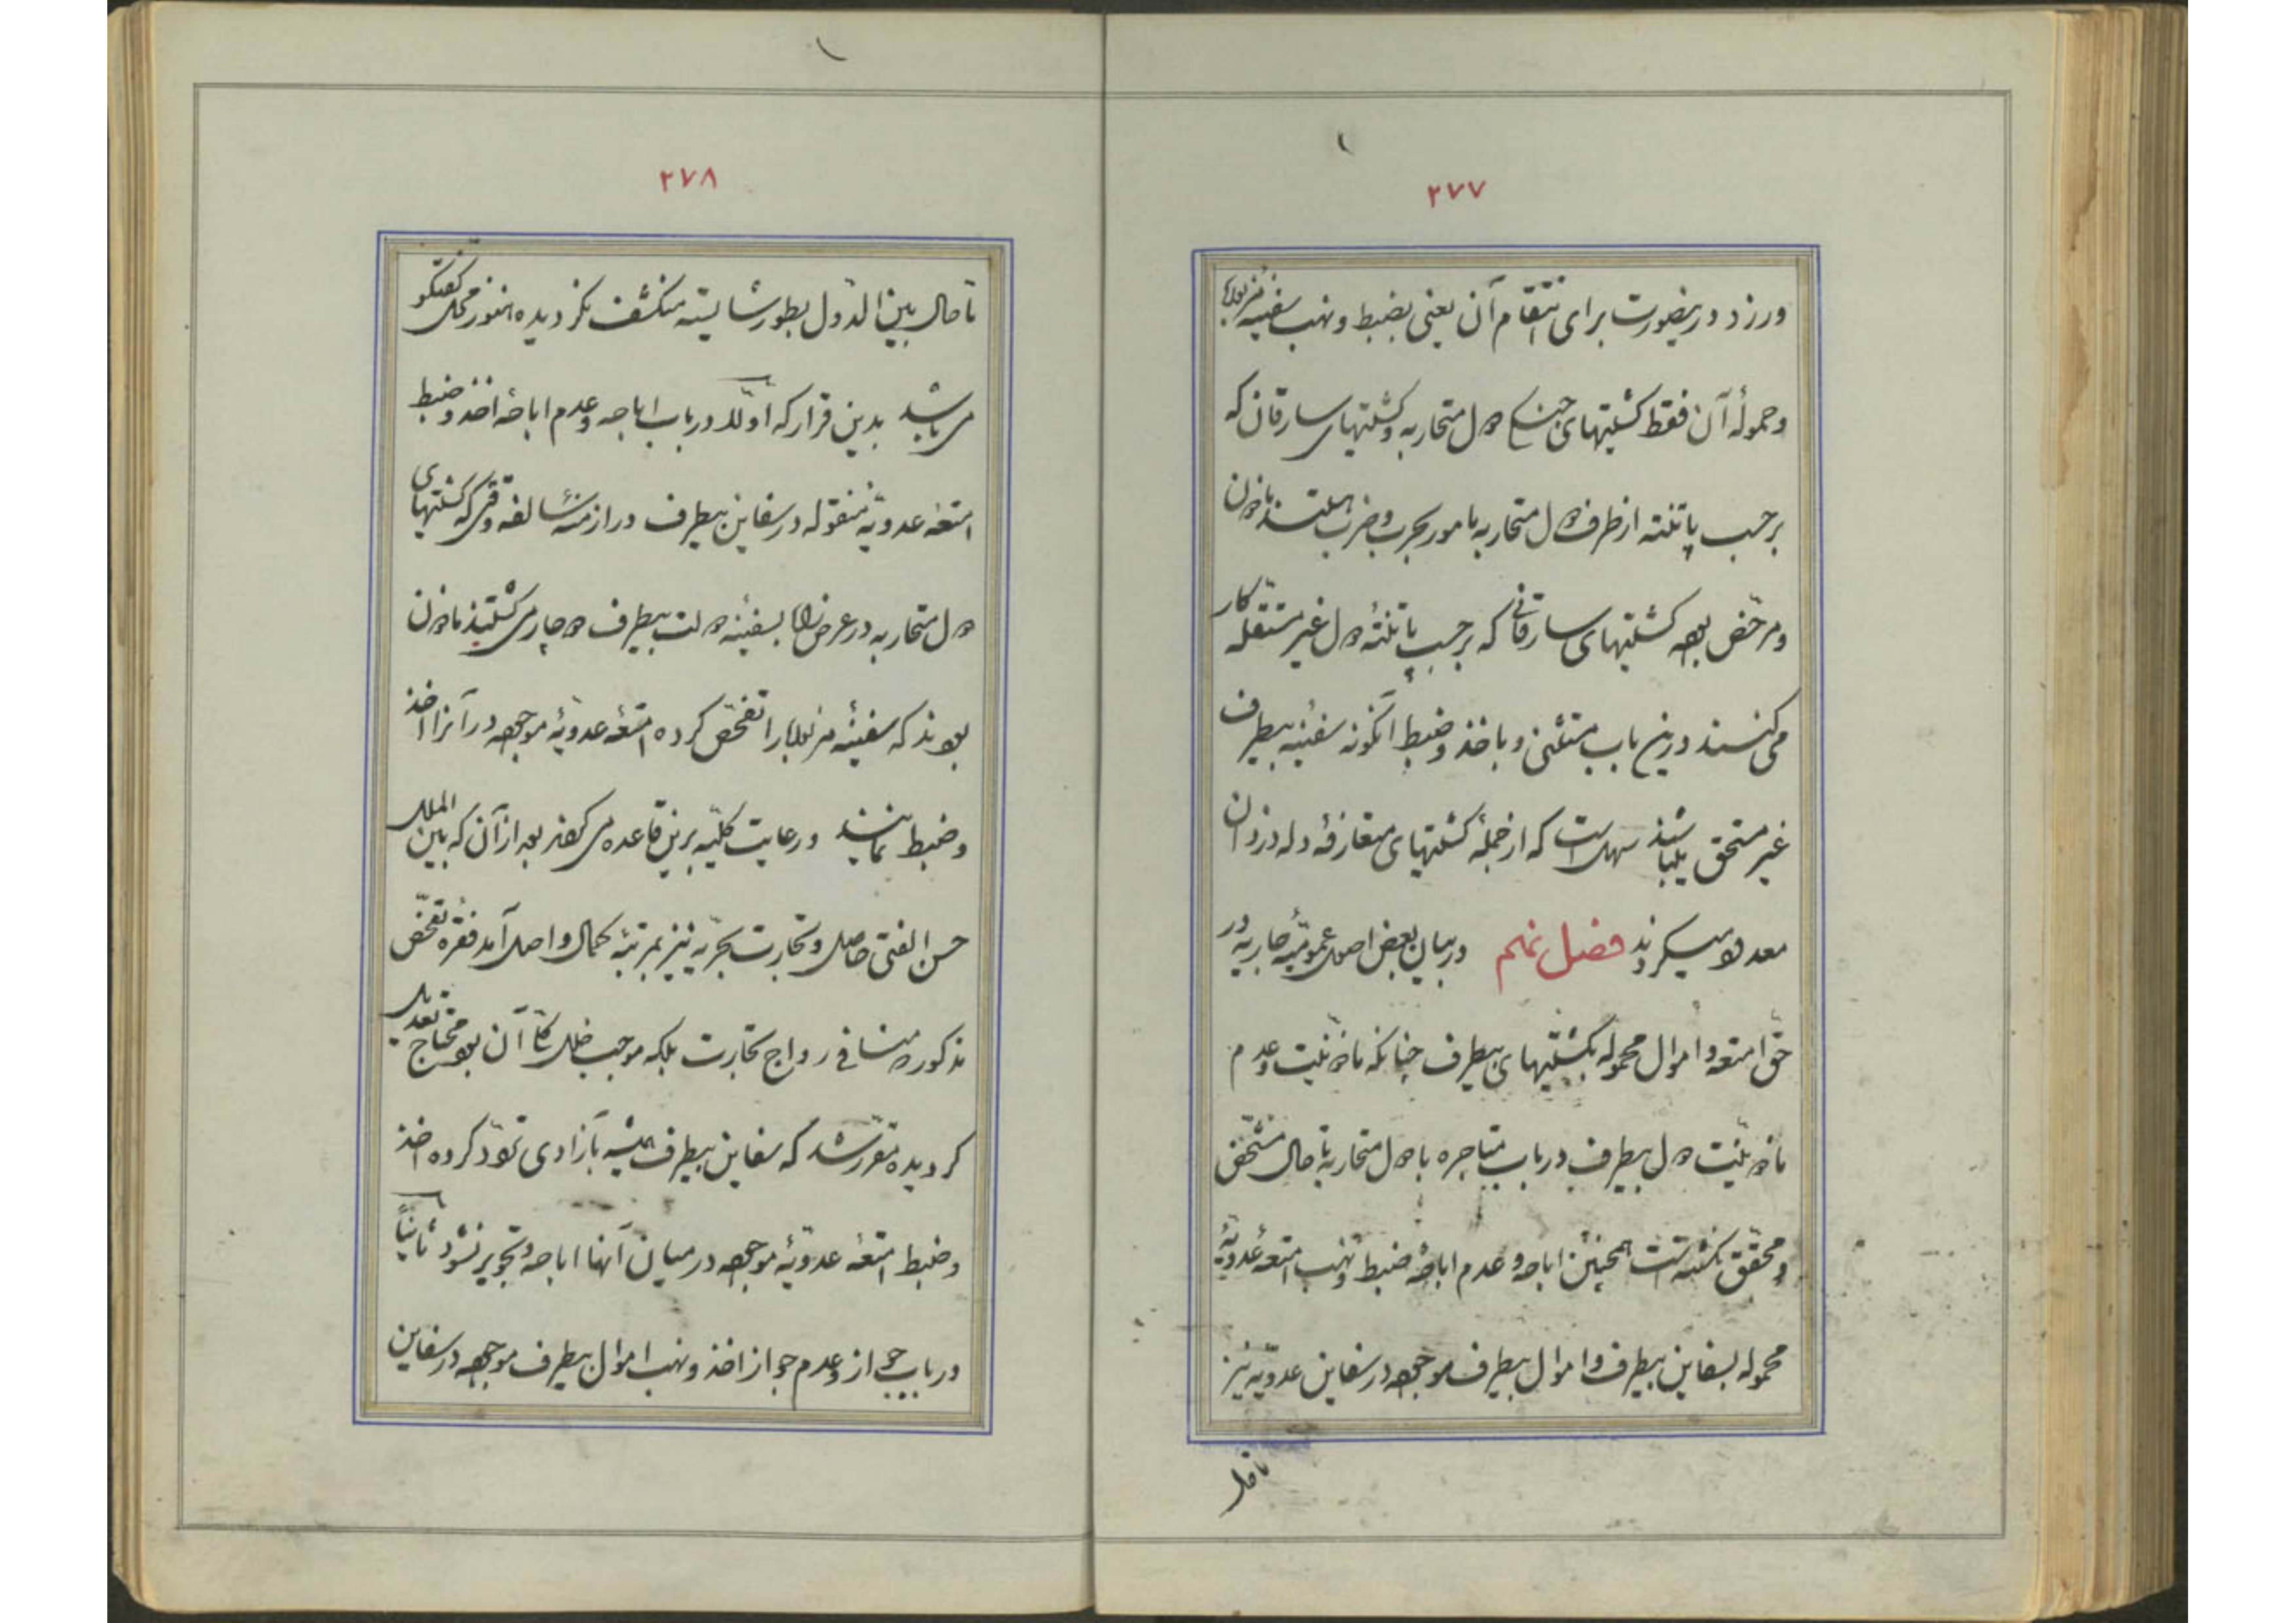 ۲۷۷
ورزد در ینصورت برای انتقام آن یعنی بضبط و نهب سفینه مزبوره
و حمولهٔ آن فقط کشتیهای جنگی دول متحاربه و کشتیهای سارقان که
برحسب پاتنته از طرف دول متحاربه مامور بحرب و ضرب هستند ماذون
و مرخّص بوده کشتیهای سارقانی که برحسب پاتنتهٔ دول غیر مستقله کار
می کنند درین باب مستثنی و باخذ و ضبط آنگونه سفینه بیطرف
غیر مستحق میباشند سهل است که از جملهٔ کشتیهای دزدان
معدود میگردند فصل نهم در بیان بعض اصول عمومیّهٔ جاریه در
حق امتعه و اموال محموله بکشتیهای بیطرف چنانکه ماذونیت و عدم
ماذونیت دول بیطرف در باب متاجره با دول متحاربه تا حال مشخّص
و محقّق نگشته است همچنین اباحه و عدم اباحهٔ ضبط و نهب امتعهٔ عدویّهٔ
محموله بسفاین بیطرف و اموال بیطرف موجوده در سفاین عدویّه نیز
تا حال
۲۷۸
تا حال بین الدول بطور شایسته منکشف نگردیده هنوز محل گفتگو
می باشد بدین قرار که اولا در باب اباحه و عدم اباحهٔ اخذ و ضبط
امتعهٔ عدویّهٔ منقوله در سفاین بیطرف در ازمنهٔ سالفه وقتی که کشتیهای
دول متحاربه در عرض راه بسفینهٔ دولت بیطرف دوچار می گشتند ماذون
بودند که سفینهٔ مزبوره را تفحّص کرده امتعهٔ عدویّهٔ موجوده در آنرا اخذ
و ضبط نمایند و رعایت کلیّه برین قاعده می بعد از آن که بین الملل
حسن الفتی حاصل و تجارت بحریّه نیز بمرتبهٔ کمال واصل آمد فقره تفحّص
مذکوره منافی رواج تجارت بلکه موجب خلل کلّی آن بوده محتاج تعدیل
گردیده مقرّر شد که سفاین بیطرف همیشه بآزادی تردّد کرده اخذ
و ضبط امتعهٔ عدویّهٔ موجوده در میان آنها اباحه و تجویز نشود ثانیاً
در باب جواز و عدم جواز اخذ و نهب اموال بیطرف موجوده در سفاین